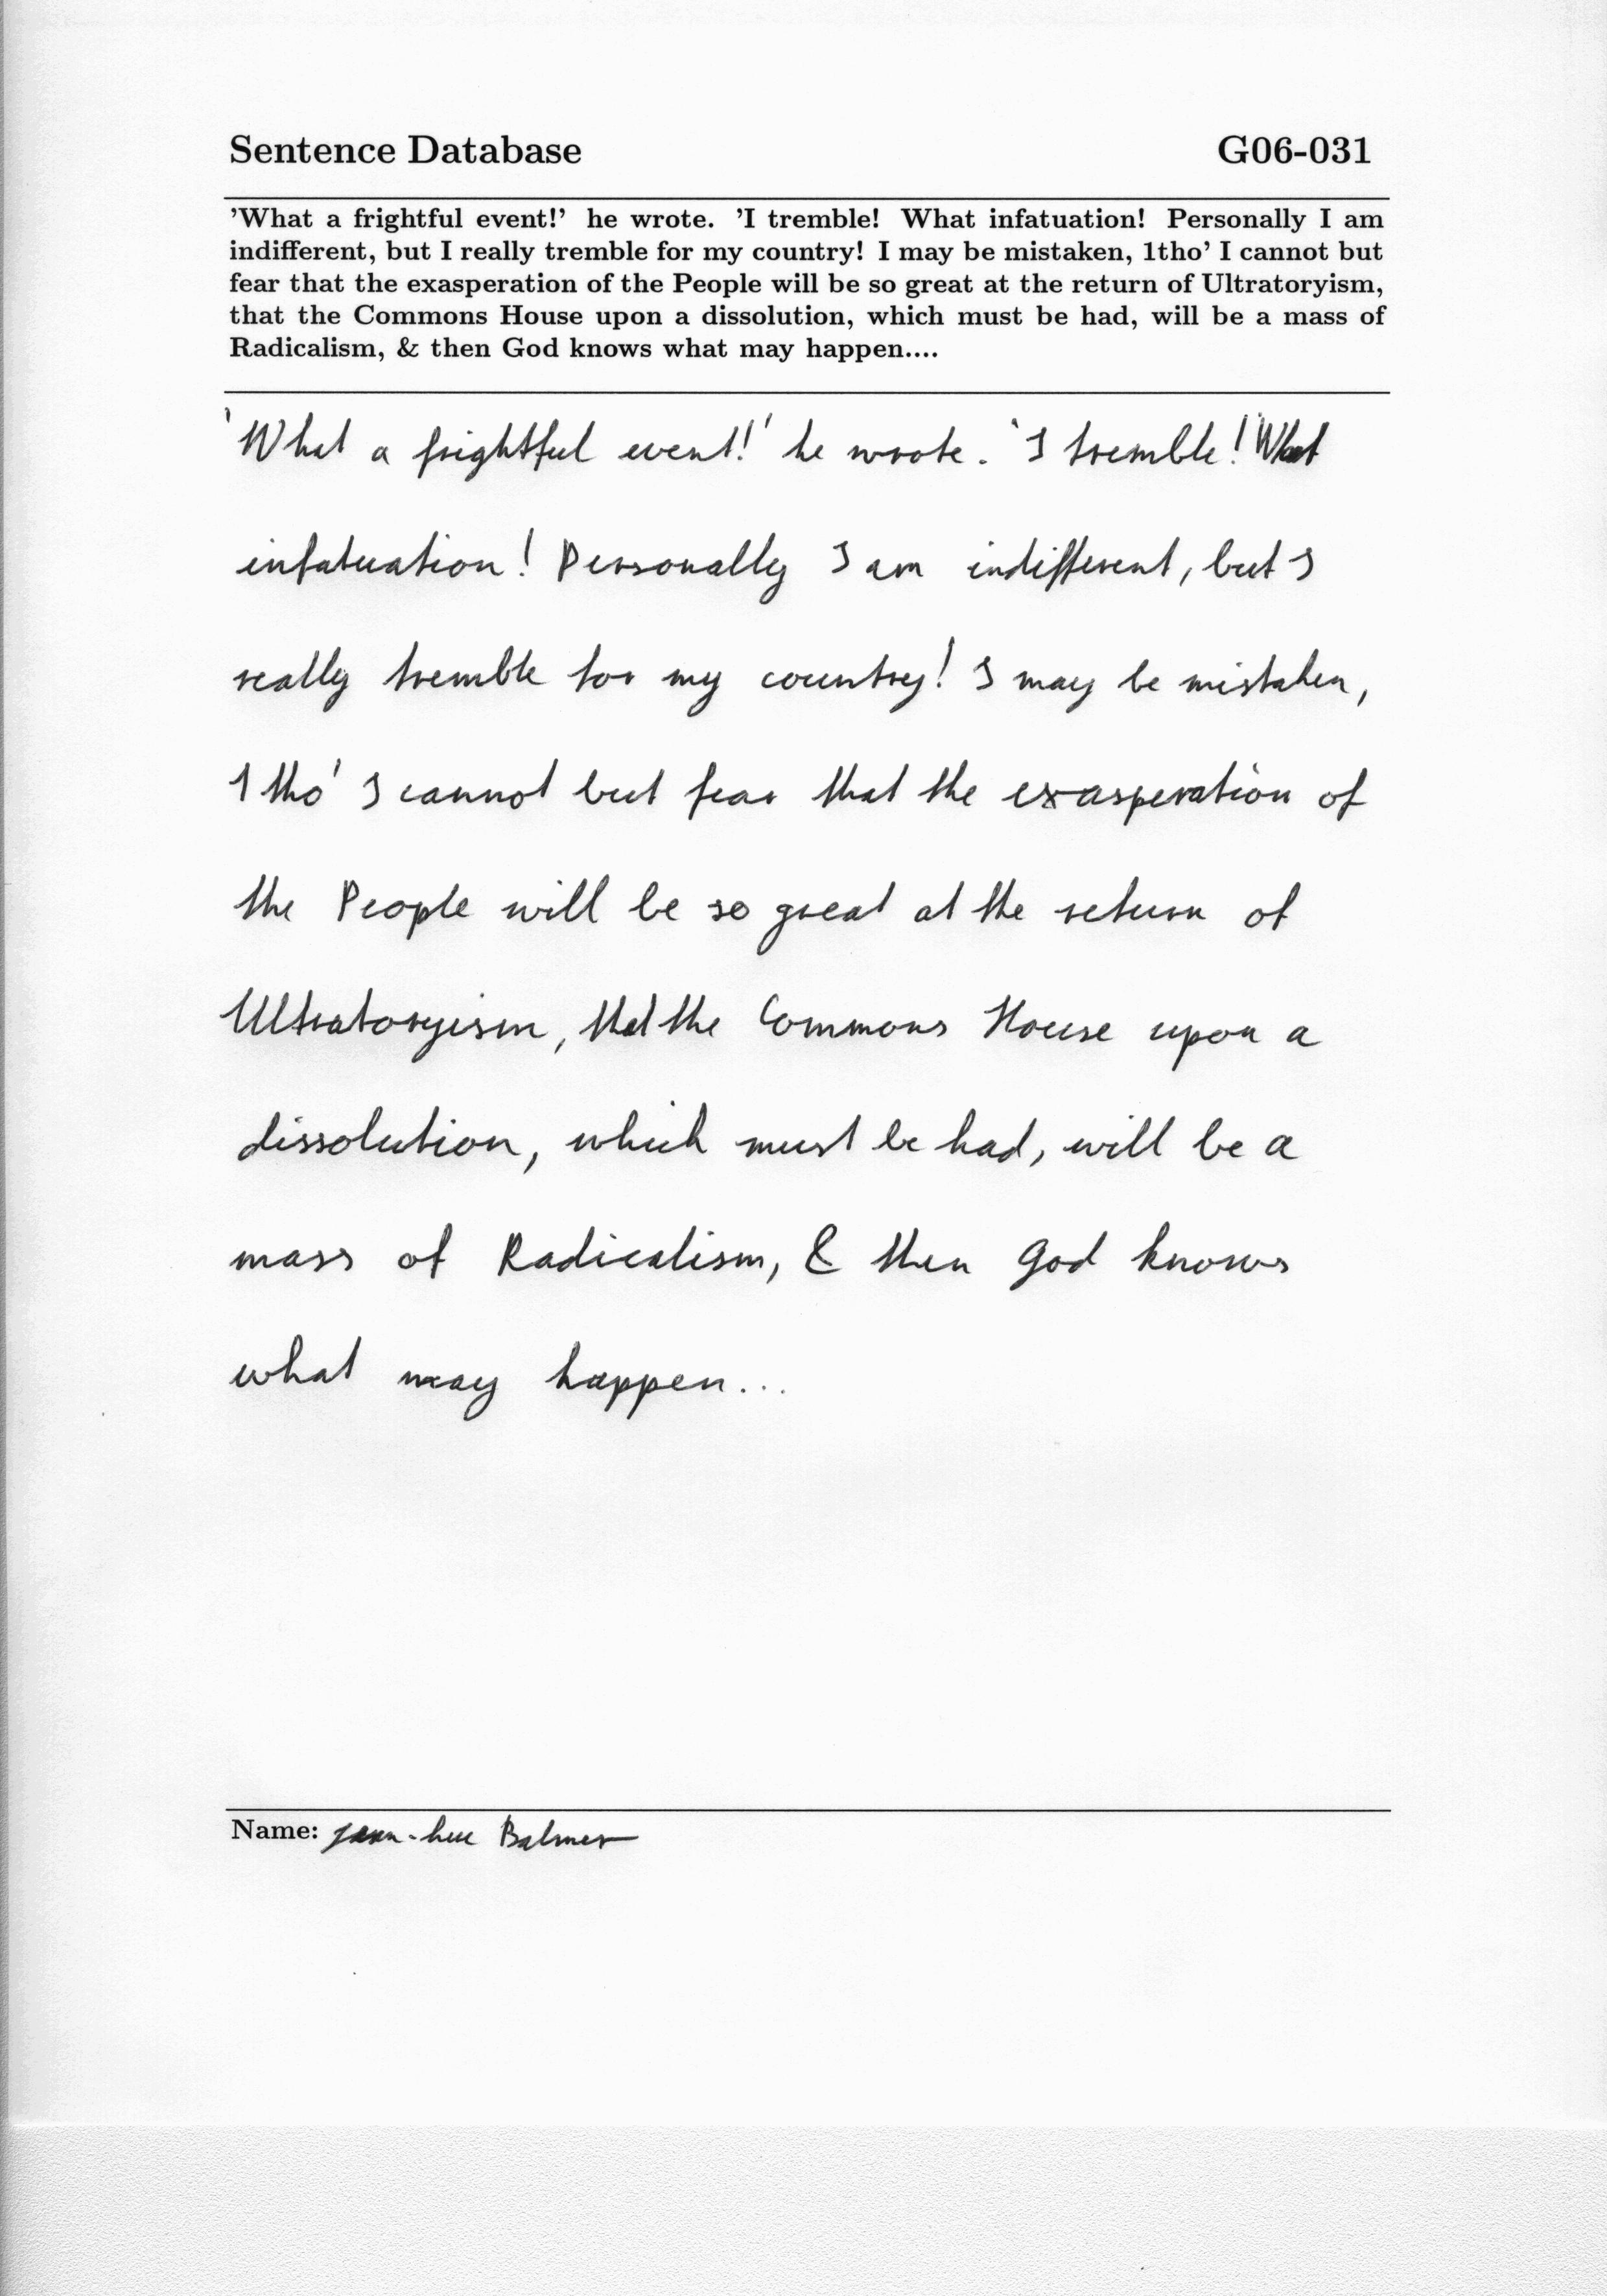 Sentence Database G06-031
'What a frightful event!' he wrote. 'I tremble! What infatuation! Personally I am
indifferent, but I really tremble for my country! I may be mistaken, 1tho' I cannot but
fear that the exasperation of the People will be so great at the return of Ultratoryism,
that the Commons House upon a dissolution, which must be had, will be a mass of
Radicalism, & then God knows what may happen....
'What a frightful event!' he wrote. 'I tremble! What
infatuation! Personally I am indifferent, but I
really tremble for my country! I may be mistaken,
1tho' I cannot but fear that the exasperation of
the People will be so great at the return of
Ultratoryism, that the Commons House upon a
dissolution, which must be had, will be a
mass of Radicalism, & then God knows
what may happen...
Name: Jean-Luc Balmer